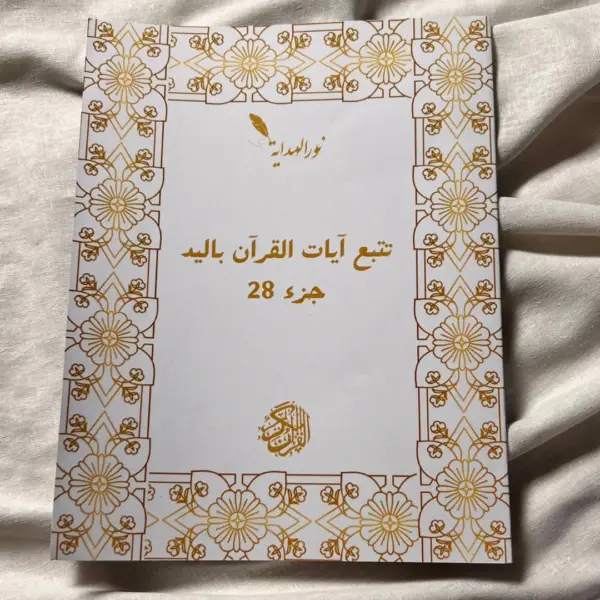 نور الهداية
تتبع آيات القرآن باليد
جزء 28
القرآن الكريم